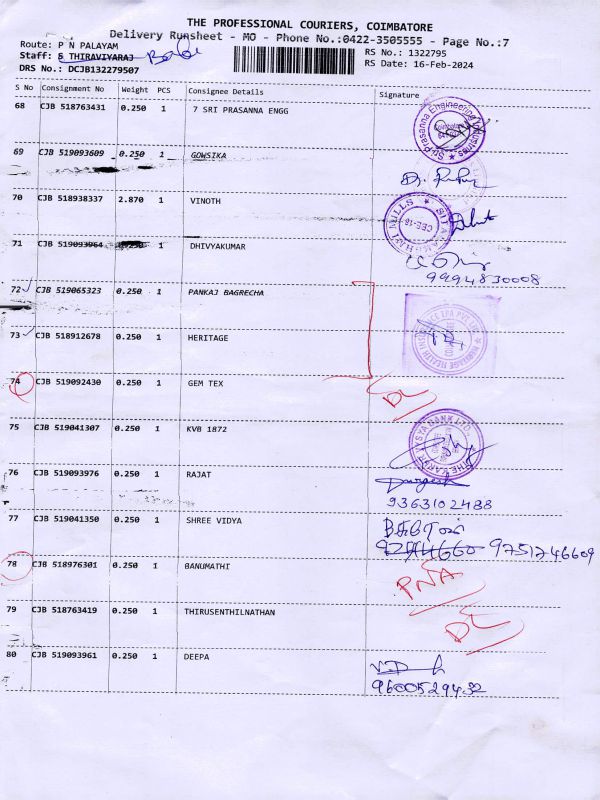 THE PROFESSIONAL COURIERS, COIMBATORE
Delivery Runsheet - MO - Phone No.:0422-3505555 - Page No.:7
Route: P N PALAYAM
RS No.: 1322795
Staff: S THIRAVIYARAJ
RS Date: 16-Feb-2024
DRS No.: DCJB132279507
S No Consignment No Weight PCS Consignee Details Signature
68 CJB 518763431 0.250 1 7 SRI PRASANNA ENGG
69 CJB 519093609 0.250 1 GOWSIKA
70 CJB 518938337 2.870 1 VINOTH
71 CJB 519093964 0.250 1 DHIVYAKUMAR
9994830008
72 CJB 519065323 0.250 1 PANKAJ BAGRECHA
73 CJB 518912678 0.250 1 HERITAGE
74 CJB 519092430 0.250 1 GEM TEX
DL
75 CJB 519041307 0.250 1 KVB 1872
76 CJB 519093976 0.250 1 RAJAT
9363102488
77 CJB 519041350 0.250 1 SHREE VIDYA
9751746609
78 CJB 518976301 0.250 1 BANUMATHI
PNA
79 CJB 518763419 0.250 1 THIRUSENTHILNATHAN
DL
80 CJB 519093961 0.250 1 DEEPA
9600529432